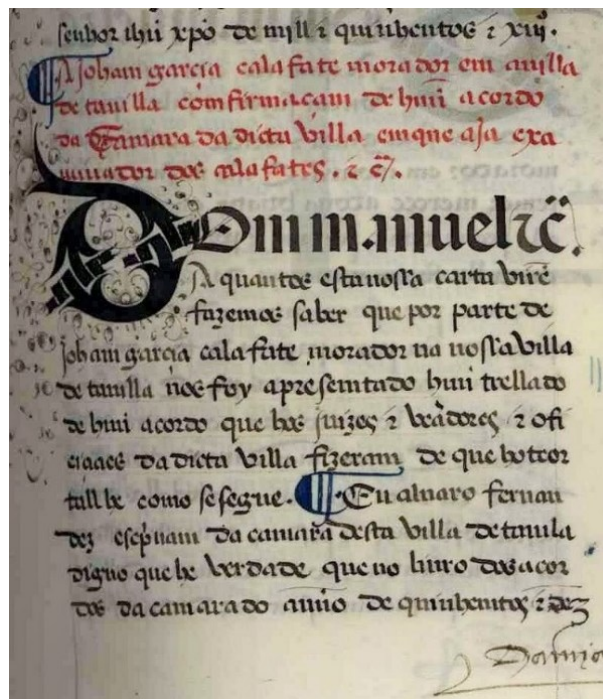 senhor ihũ xpõ de mill ⁊ quinhentos ⁊ xiij.
A Joham garcia calafate morador em auilla
de tauilla comfirmaçam de huũ acordo
da Camara da dicta villa em que aja exa
minador dos calafates. ⁊ cᵃ.
Dom m.anuel ⁊c̃.
A quantos esta nossa carta virẽ
fazemos saber que por parte de
Joham garcia calafate morador na nossa villa
de tauilla nos foy apresentado huũ trellado
de huũ acordo que hos juizes ⁊ veadores ⁊ ofi
ciaaes da dicta villa fizeram de que ho teor
tall he como se segue. Eu aluaro fernan
dez escpuam da camara desta villa de tauila
digno que he verdade que no liuro dos acor
dos da camara do anno de quinhentos ⁊ dez